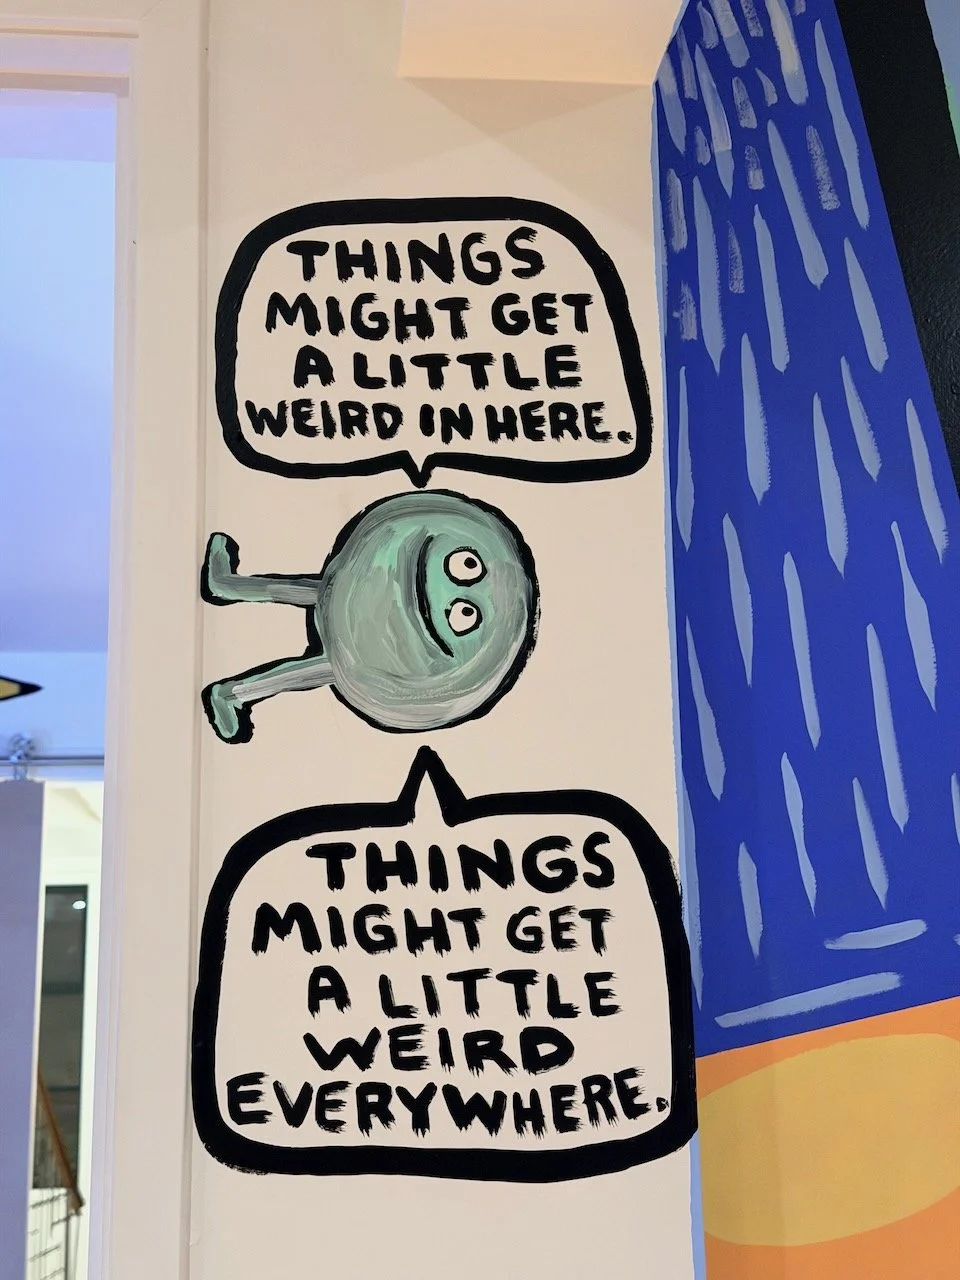 THINGS
MIGHT GET
A LITTLE
WEIRD IN HERE.
THINGS
MIGHT GET
A LITTLE
WEIRD
EVERYWHERE.